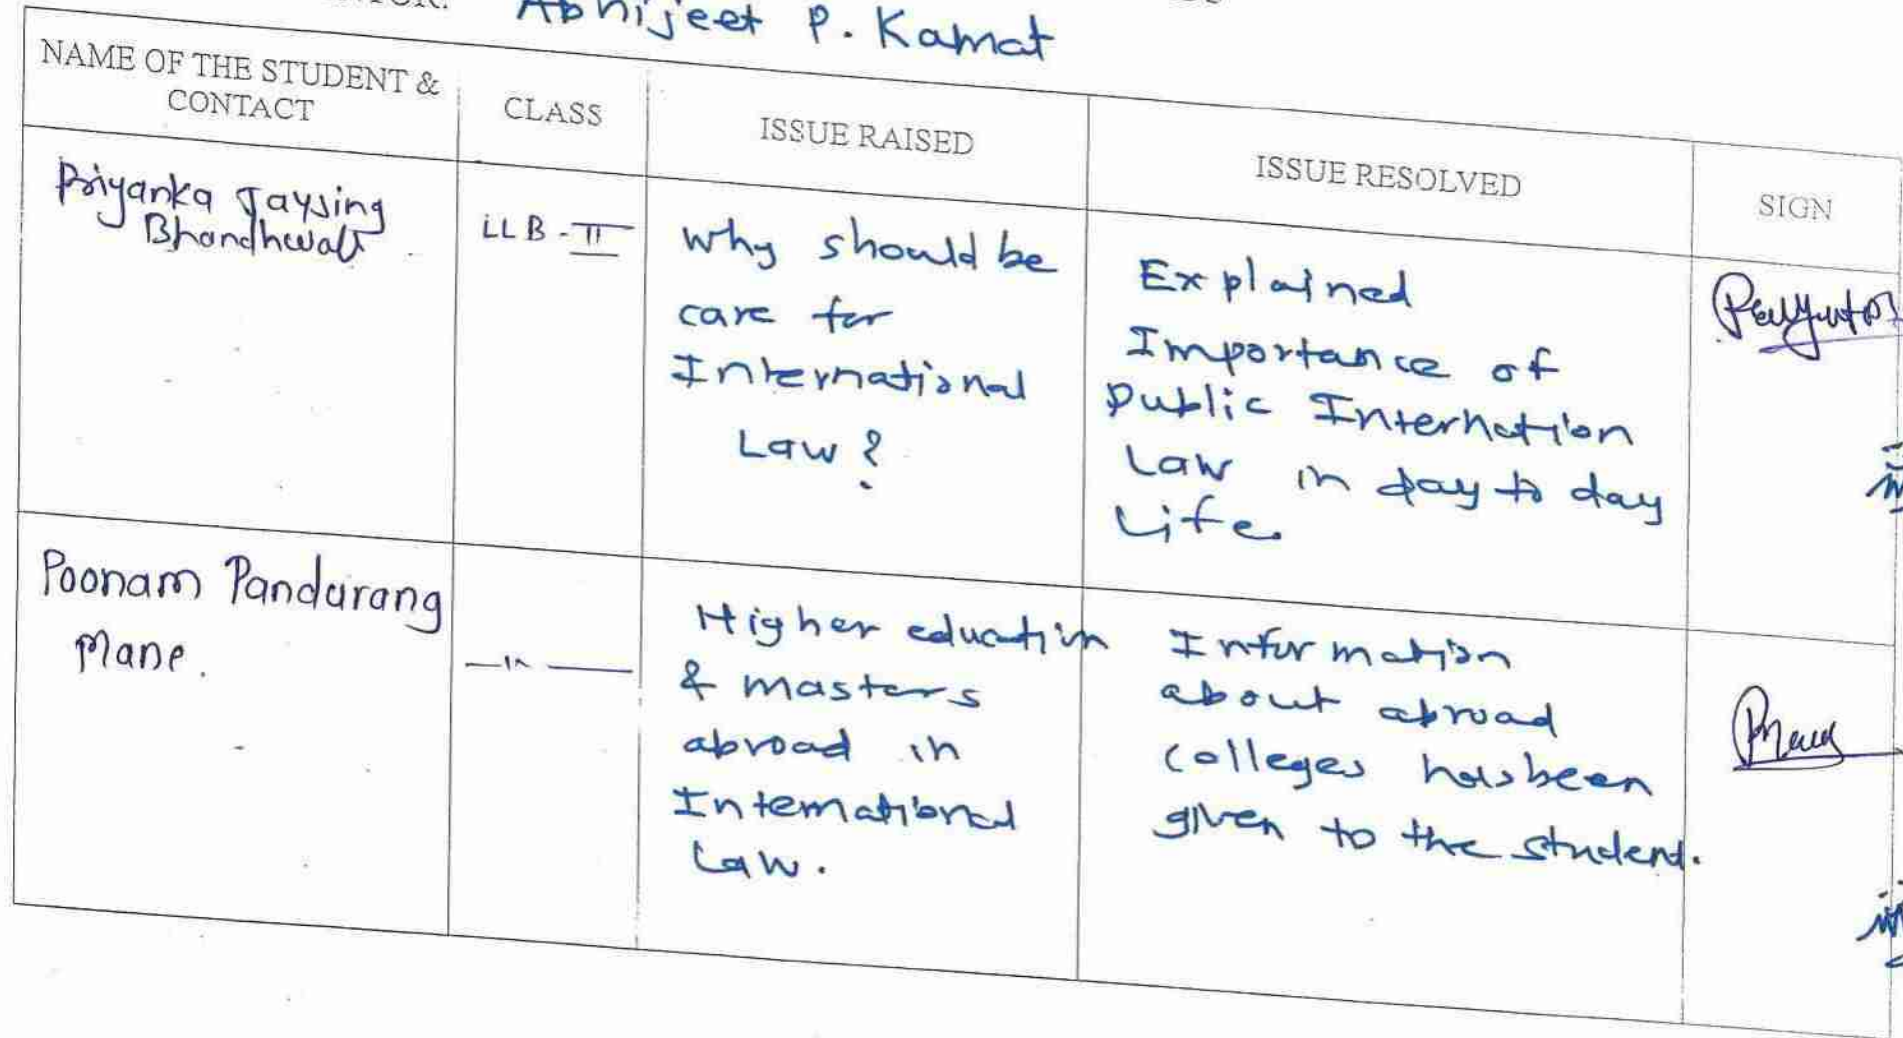 Abhijeet P. Kamat
NAME OF THE STUDENT &
CONTACT
CLASS
ISSUE RAISED
ISSUE RESOLVED
SIGN
Priyanka Jaysing
LLB - II
Why should be
care for
International
Law ?
Explained
Importance of
Public Internation
Law in day to day
Life.
Poonam Pandurang
Mane.
—〃—
Higher education
& masters
abroad in
International
Law.
Information
about abroad
colleges has been
given to the student.